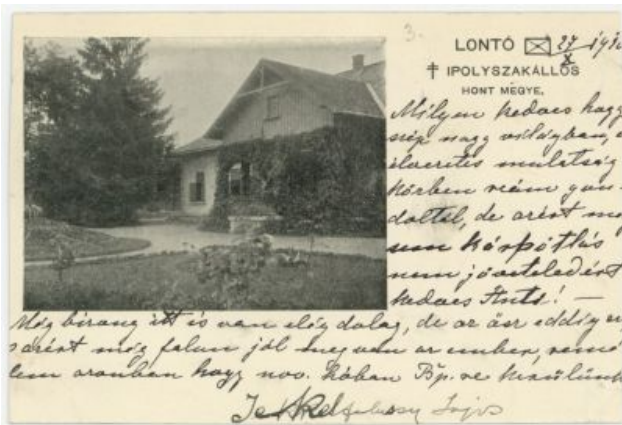 3.
LONTÓ 27/X 1910
† IPOLYSZAKÁLLOS
HONT MEGYE,
Milyen kedves hogy
szép nagy világban,
mulatság
körben reám gon-
doltál, de azért
nem kárpótlás
nem jöveteledért
kedves
Még itt is van elég dolog, de az ősz eddig
s azért még falun jól meg van az ember, remé
lem azonban hogy nov. hóban Bp.re kerülünk
Lajos